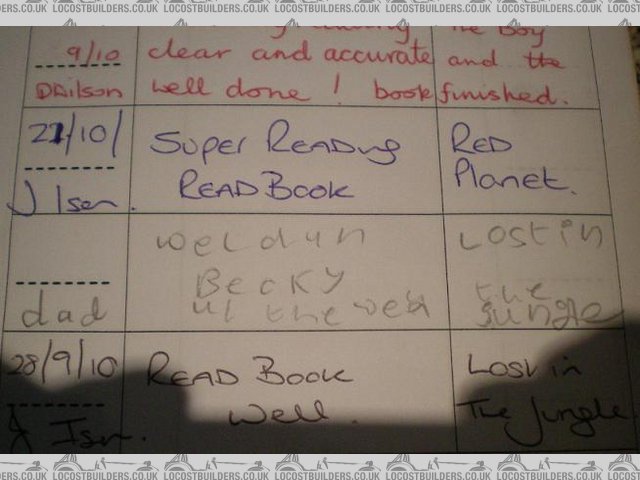 LOCOSTBUILDERS.CO.UK LOCOSTBUILDERS.CO.UK LOCOSTBUILDERS.CO.UK LOCOSTBUILDERS.CO.UK
The Boy
9/10 clear and accurate and the
well done! book finished.
21/10/ Super Reading RED
READ BOOK Planet.
weldun Lost in
Becky the
dad jungle
28/9/10 READ BOOK Lost in
Well. The Jungle
LOCOSTBUILDERS.CO.UK LOCOSTBUILDERS.CO.UK LOCOSTBUILDERS.CO.UK LOCOSTBUILDERS.CO.UK